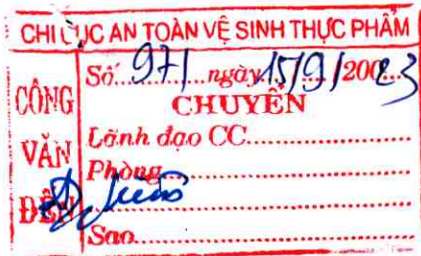 CHI CỤC AN TOÀN VỆ SINH THỰC PHẨM
CÔNG VĂN ĐẾN
Số 971 ngày 15/9/2023
CHUYỂN
Lãnh đạo CC
Phòng
Sao